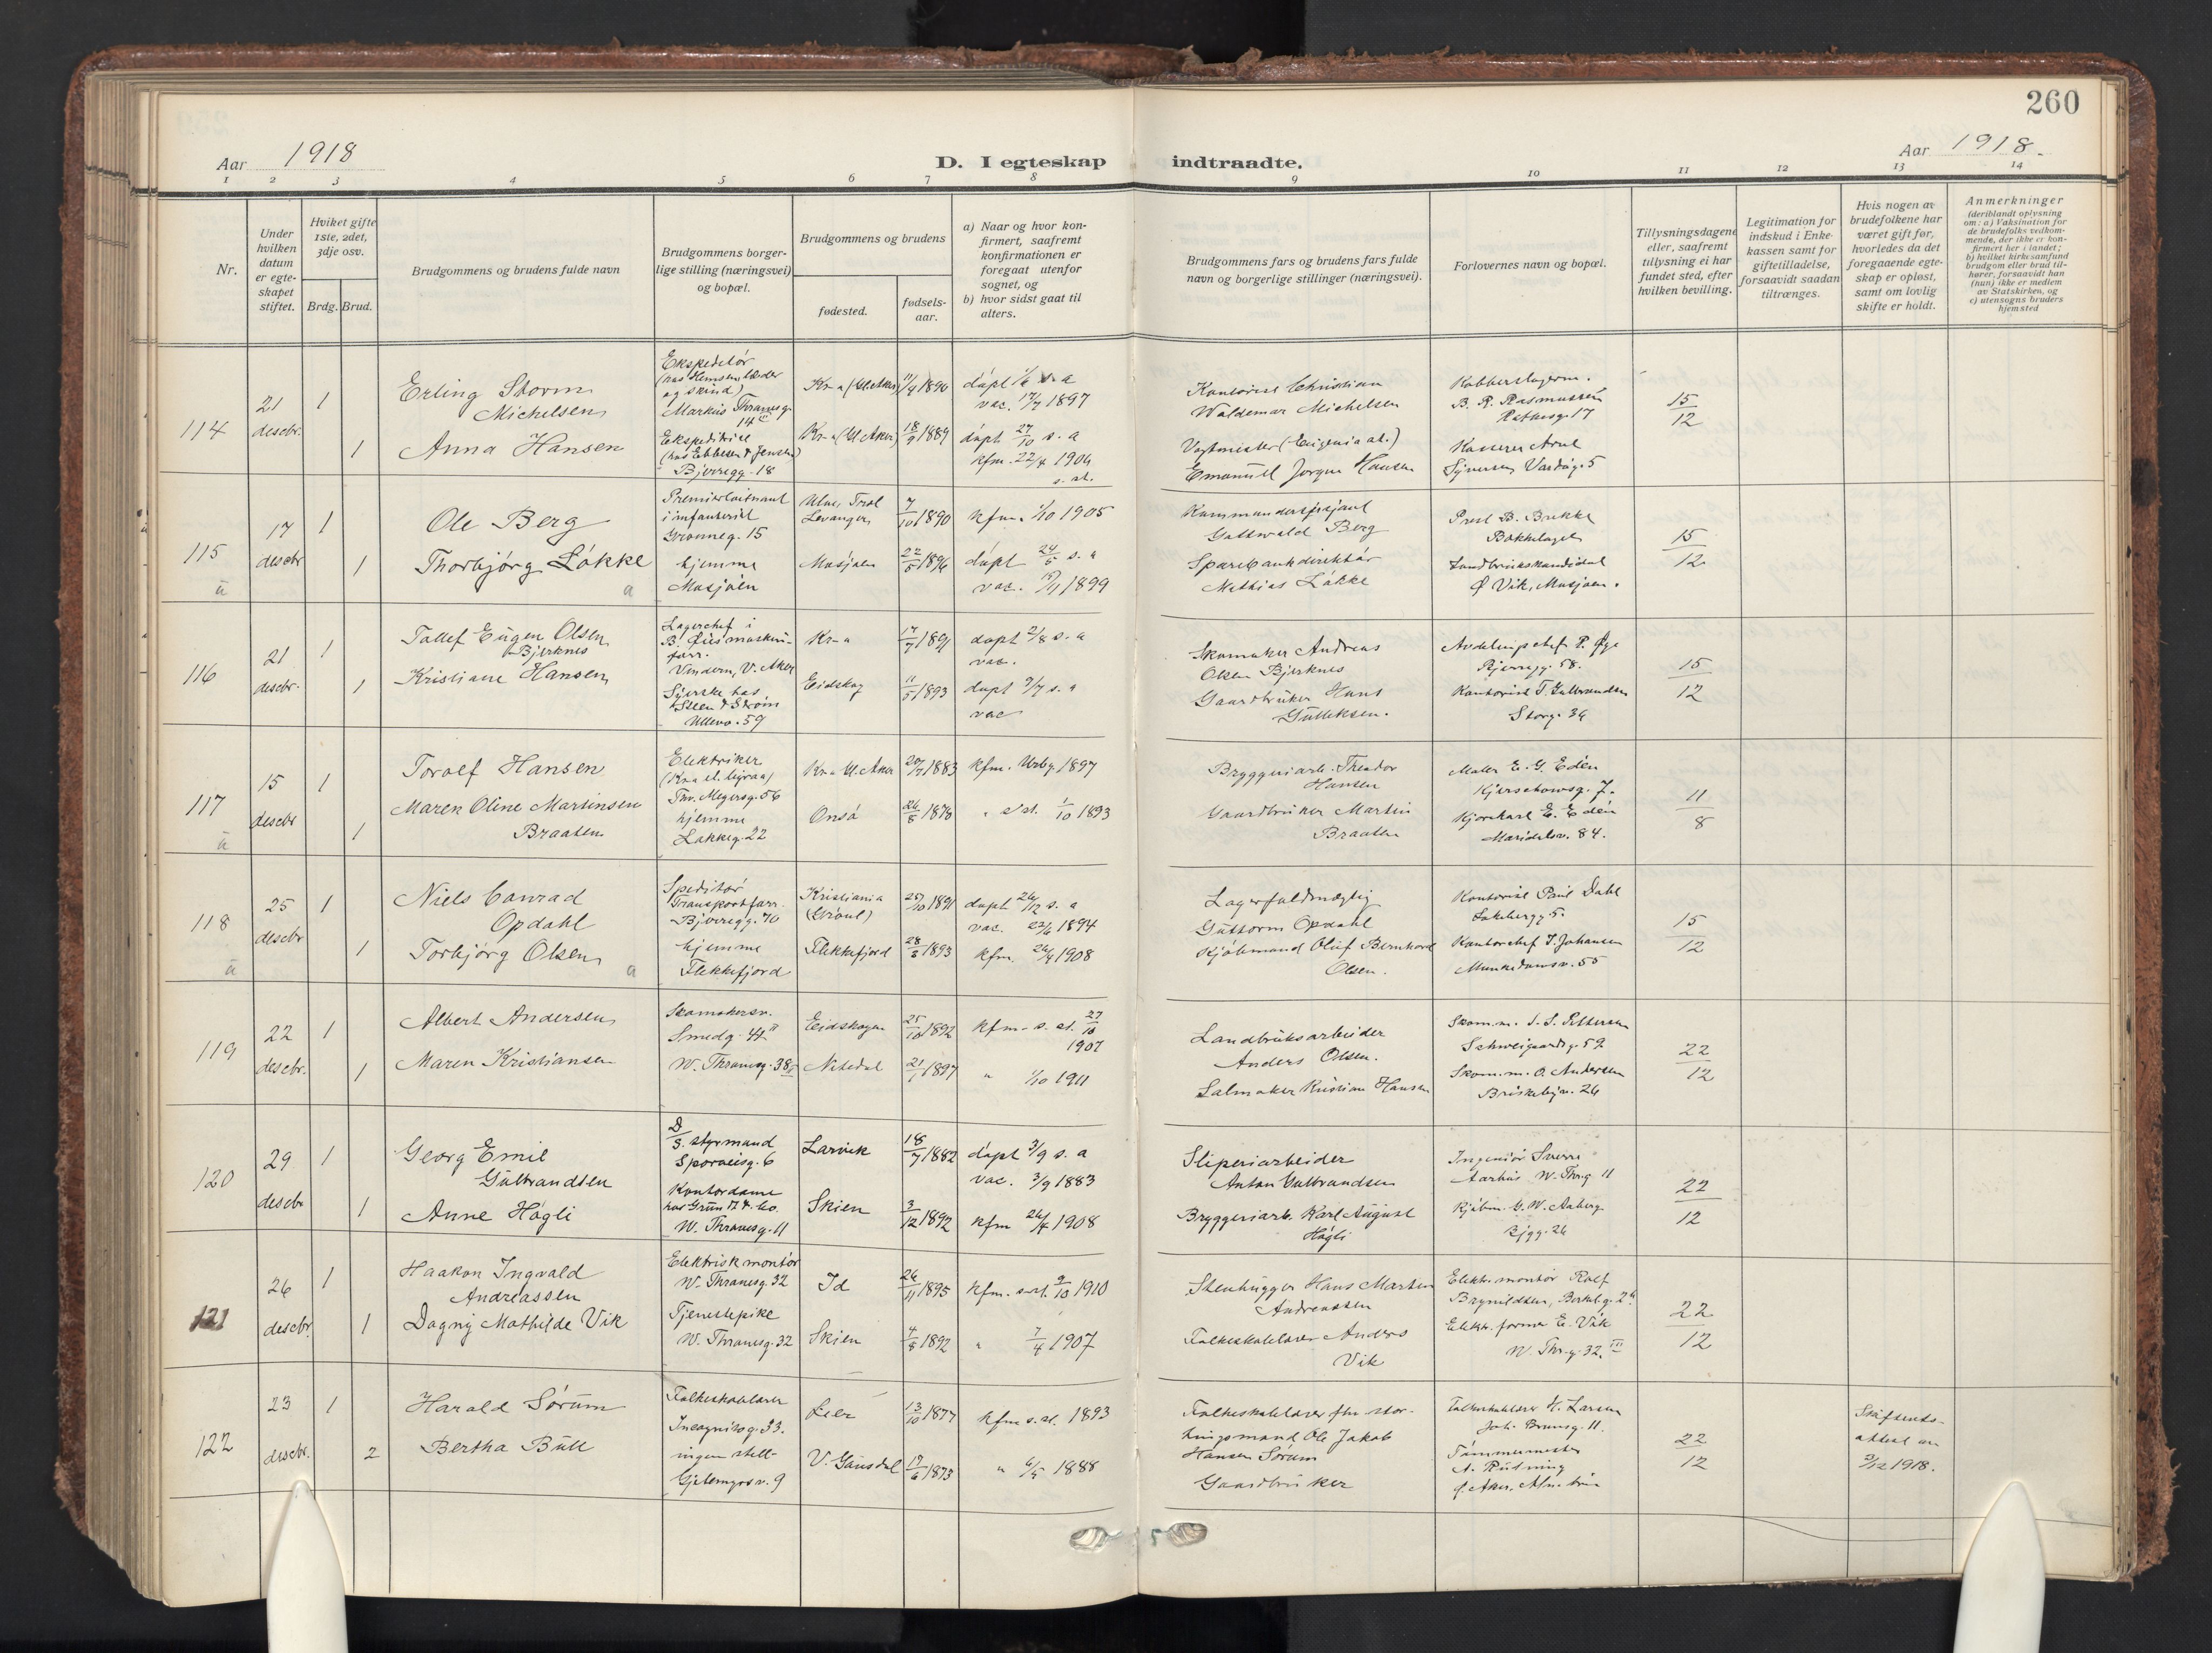 260
Aar 1918
D. I egteskap indtraadte.
Aar 1918.
1 2 3 4 5 6 7 8 9 10 11 12 13 14
Nr.
Under
hvilken
datum
er egte-
skapet
stiftet.
Hviket gifte
1ste, 2det,
3dje osv.
Brdg. Brud.
Brudgommens og brudens fulde navn
Brudgommens borger-
lige stilling (næringsvei)
og bopæl.
Brudgommens og brudens
fødested.
fødsels-
aar.
a) Naar og hvor kon-
firmert, saafremt
konfirmationen er
foregaat utenfor
sognet, og
b) hvor sidst gaat til
alters.
Brudgommens fars og brudens fars fulde
navn og borgerlige stillinger (næringsvei).
Forlovernes navn og bopæl.
Tillysningsdagene
eller, saafremt
tillysning ei har
fundet sted, efter
hvilken bevilling.
Legitimation for
indskud i Enke-
kassen samt for
giftetilladelse,
forsaavidt saadan
tiltrænges.
Hvis nogen av
brudefolkene har
været gift før,
hvorledes da det
foregaaende egte-
skap er opløst,
samt om lovlig
skifte er holdt.
Anmerkninger
(deriblandt oplysning
om: a) Vaksination for
de brudefolks vedkom-
mende, der ikke er kon-
firmert her i landet;
b) hvilket kirkesamfund
brudgom eller brud til-
hører, forsaavidt han
(hun) ikke er medlem
av Statskirken, og
c) utensogns bruders
hjemsted
114
21
descbr.
1
1
Erling Storm
Michelsen
Anna Hansen
Ekspeditør
(hos Hemsen læder
og skind)
Markus Thranesg.
14 II
Ekspeditrise
(hos Ebbesen & Jensen)
Bjerregg. 18
Kr-a (Gl. Aker)
11/4 1896
døpt 1/6 s. a
vac. 17/7 1897
Kr-a (Gl. Aker)
18/9 1889
døpt 27/10 s. a
kfm. 22/4 1904
s. st.
Kontorist Christian
Waldemar Michelsen
Vagtmester (Eugenia st.)
Emanuel Jørgen Hansen
Kobberslagerm.
B. R. Rasmussen
Rathesg. 17
Kasserer Arnt
Syversen Vardåg. 5
15
12
115
17
descbr
1
1
Ole Berg
Thorbjørg Løkke
a
Premierløitnant
i infanteriet
Grønneg. 15
hjemme
Mosjøen
Levanger
7/10 1890
kfm. 1/10 1905
Mosjøen
22/5 1896
døpt 24/5 s. a
vac. 1899
Kommandersersjant
Gottwald Berg
Sparebankdirektør
Mathias Løkke
Prest B. Brekke
Bækkelaget
Landbrukskandidat
Ø Vik, Mosjøen.
15
12
116
21
descbr.
1
1
Tollef Eugen Olsen
Bjerknes
Kristiane Hansen
Lagerchef i
Vindern, V. Aker
Syerske hos
Steen & Strøm
Ullevv. 59
Kr-a
17/7 1891
døpt 2/8 s. a
vac.
Eidskog
11/5 1893
døpt 9/7 s. a
vac
Skomaker Andreas
Olsen Bjerknes
Gaardbruker Hans
Gulleksen.
Avdelingschef P. Øye
Bjerregg. 58.
Kontorist T. Gulbrandsen
Storg. 34
15
12
117
15
descbr
1
1
Torolf Hansen
Maren Oline Martinsen
Braaten
Elektriker
(Kr-a el. byraa)
Thv. Meyersg. 56
hjemme
Lakkeg. 22
Kr-a Gl. Aker
20/7 1883
kfm. Urbg. 1897
Onsø
26/8 1878
" s. st. 1/10 1893
Bryggeriarb. Theodor
Hansen
Gaardbruker Martin
Braaten
Maler E. G. Edén
Kjerschowsg. 7.
Kjørekarl E. Edén
Maridalsv. 84.
11
8
118
25
descbr
1
1
Niels Conrad
Opdahl
Torbjørg Olsen
a
Speditør
Transportforr.
Bjerregg. 70
hjemme
Flekkefjord
Kristiania
(Grønl.)
25/10 1891
døpt 26/12 s. a
vac. 22/6 1894
Flekkefjord
28/3 1893
kfm. 26/4 1908
Lagerfuldmægtig
Guttorm Opdahl
Kjøbmand Oluf Bernhard
Olsen.
Kontorist Paul Dahl
Kontorchef J. Johansen
Munkedamsv. 55
15
12
119
22
descbr.
1
1
Albert Andersen
Maren Kristiansen
Skomakersv.
Smedg. 44 II
W. Thranesg. 38 I
Eidskogen
25/10 1892
kfm. s. st. 27/10
1907
Nitedal
21/1 1897
" 1/10 1911
Landbruksarbeider
Anders Olsen.
Salmaker Kristian Hansen
Skom.m. J. S. Pettersen
Schweigaardsg. 59.
Skom.m. O. Andersen
Briskebyv. 26
22
12
120
29
descbr
1
1
Georg Emil
Gulbrandsen
Anne Høgli
D/S. styrmand
Sporveisg. 6
Kontordame
hos Grün & Co.
W. Thranesg. 11
Larvik
18/7 1882
døpt 3/9 s. a
vac. 3/9 1883
Skien
3/12 1892
kfm 26/4 1908
Sliperiarbeider
Anton Gulbrandsen
Bryggeriarb. Karl August
Høgli
Ingeniør Sverre
Aarhus W. Thrg 11
Kjøbm. G. W. Aaberg
Bjgg. 26
22
12
121
26
descbr.
1
1
Haakon Ingvald
Andreassen
Dagny Mathilde Vik
Elektrisk montør
W. Thranesg. 32
Tjenestepike
W. Thranesg. 32
Id
26/11 1895
kfm. s.st. 9/10 1910
Skien
4/8 1892
" 7/4 1907
Stenhugger Hans Martin
Andreassen
Folkeskolelærer Anders
Vik
Elektr. montør Rolf
Brynildsen,
Elektr. former E. Vik
W. Thr.g. 32. III
22
12
122
23
descbr.
1
2
Harald Sørum
Bertha Bull
Folkeskolelærer
Incognitog. 33.
ingen still-
Gjetemyrsv. 9
Lier
13/10 1877
kfm s. st. 1893
V. Gausdal
17/6 1873
" 6/5 1888
Folkeskolelærer fhv stor-
tingsmand Ole Jakob
Hansen Sørum
Gaardbruker
Folkeskolelærer H. Larsen
Joh. Brunsg. 11.
Tømmermester
22
12
Skifterets-
attest av
3/12 1918.